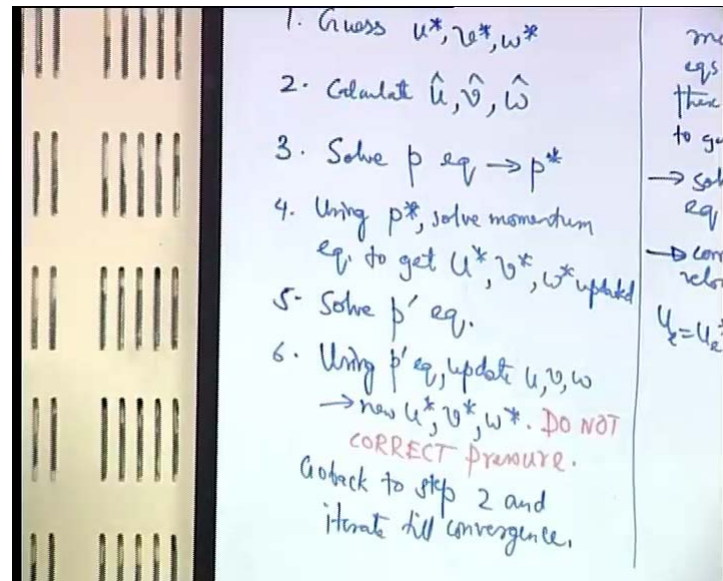 1. Guess u*, v*, w*
2. Calculate û, v̂, ŵ
3. Solve p eq → p*
4. Using p*, solve momentum
eq. to get u*, v*, w* updated
5- Solve p' eq.
6. Using p' eq, update u, v, w
→ new u*, v*, w*. DO NOT
CORRECT Pressure.
Go back to step 2 and
iterate till convergence.
eqs
to
→
eq
→